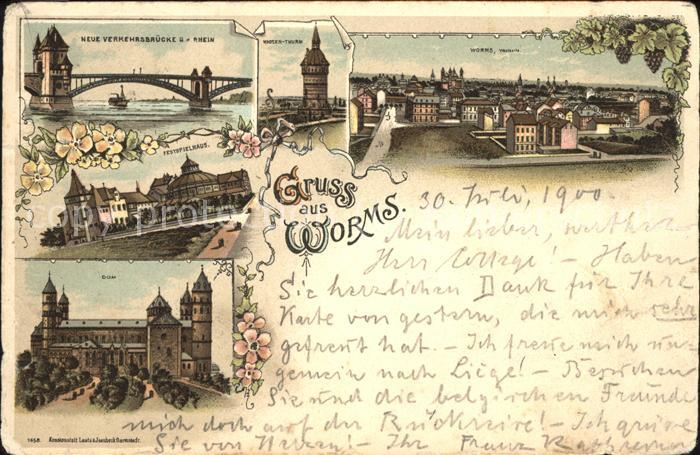 NEUE VERKEHRSBRÜCKE ü. RHEIN
WASSER-THURM
WORMS,
FESTSPIELHAUS.
DOM
Gruss
aus
WORMS.
30. Juli, 1900.
Mein lieber, werther
Herr College! – Haben
Sie herzlichen Dank für Ihre
Karte von gestern, die mich sehr
gefreut hat. – Ich freue mich un-
gemein nach Liège! – Besuchen
Sie und die belgischen Freunde
mich doch auf der Rückreise! – Ich grüsse
Sie von Herzen! – Ihr Franz
1658. Kunstanstalt Lautz & Isenbeck Darmstadt.